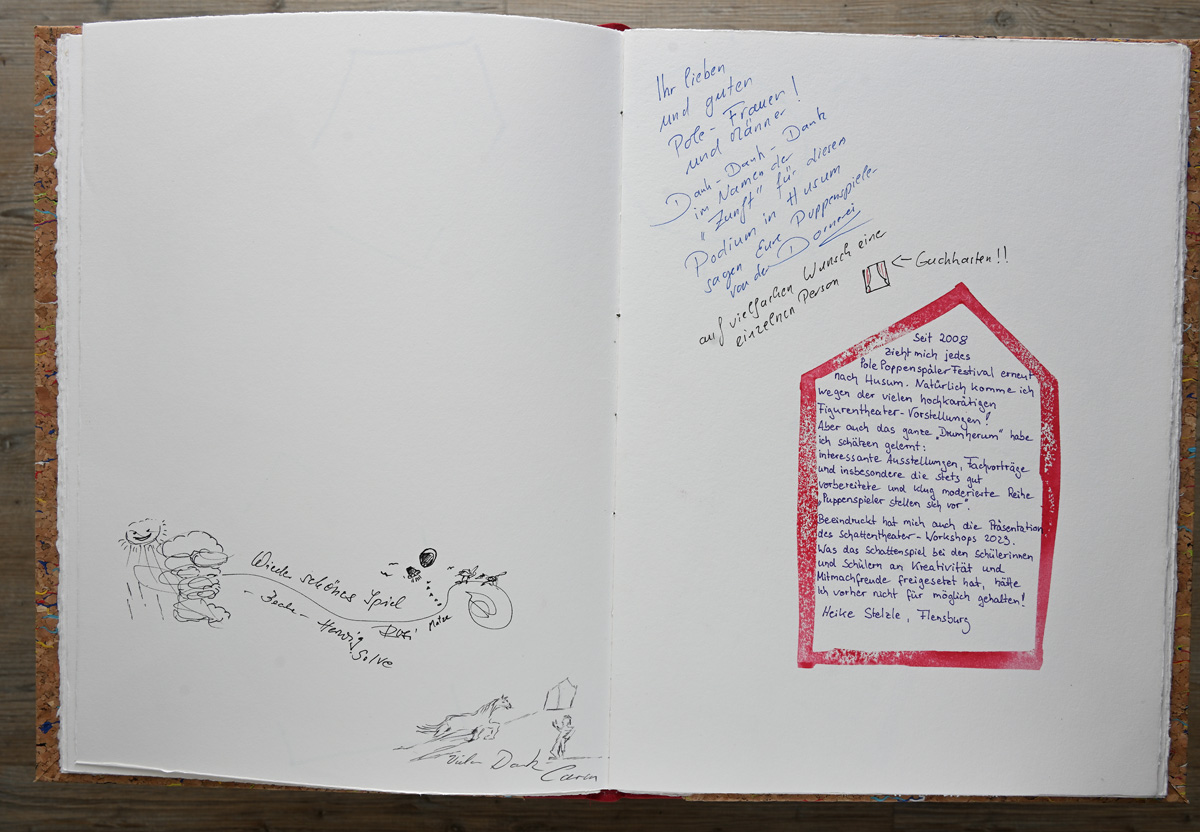 Wieder schönes Spiel
Herwig
Solve
Vielen Dank
Ihr lieben
und guten
Pole-Frauen!
und Männer
Dank-Dank-Dank
im Namen der
"Zunft" für diesen
Podium in Husum
sagen Eure Puppenspieler
von der Dornerei
auf vielfachen Wunsch eine
einzelnen Person
← Guckkasten!!
Seit 2008
zieht mich jedes
Pole Poppenspäler Festival erneut
nach Husum. Natürlich komme ich
wegen der vielen hochkarätigen
Figurentheater-Vorstellungen!
Aber auch das ganze „Drumherum“ habe
ich schätzen gelernt:
interessante Ausstellungen, Fachvorträge
und insbesondere die stets gut
vorbereitete und klug moderierte Reihe
„Puppenspieler stellen sich vor“.
Beeindruckt hat mich auch die Präsentation
des Schattentheater-Workshops 2023.
Was das Schattenspiel bei den Schülerinnen
und Schülern an Kreativität und
Mitmachfreude freigesetzt hat, hätte
ich vorher nicht für möglich gehalten!
Heike Stelzle, Flensburg